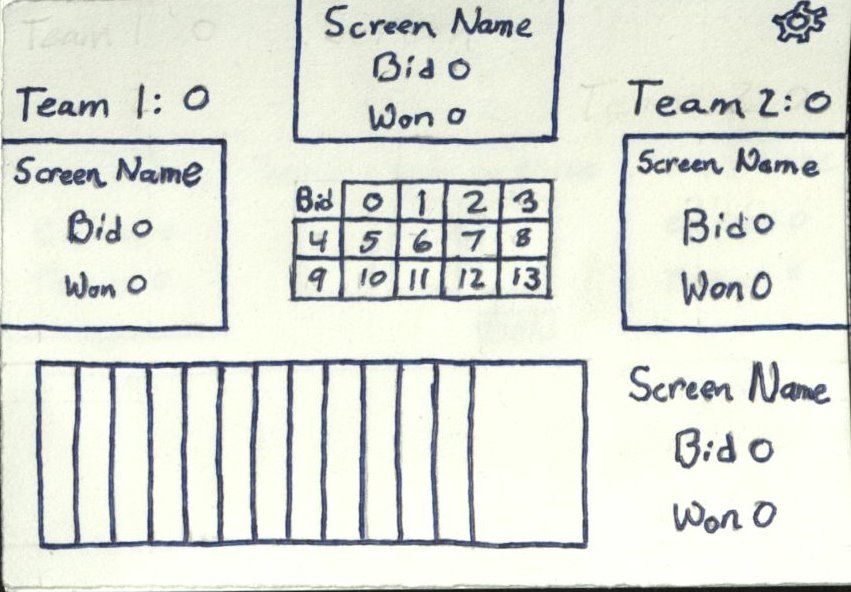 Screen Name
Bid 0
Won 0
Team 1: 0
Team 2: 0
Screen Name
Bid 0
Won 0
Bid 0 1 2 3
4 5 6 7 8
9 10 11 12 13
Screen Name
Bid 0
Won 0
Screen Name
Bid 0
Won 0